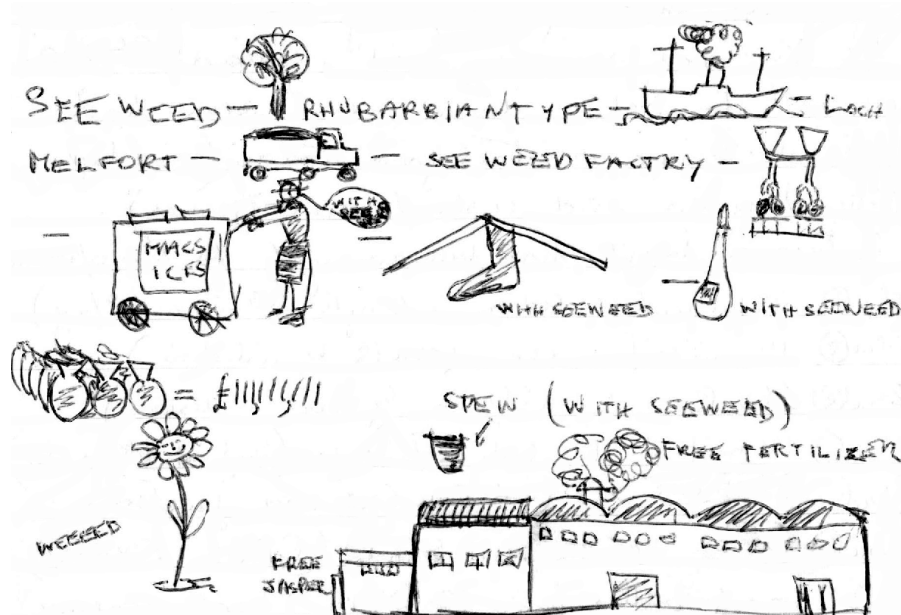 SEE WEED — RHUBARBIANTYPE — LOCH
MELFORT — — SEE WEED FACTRY —
WITH
MACS
ICES
WITH SEEWEED
WITH SEEWEED
= £11111111
STEW (WITH SEEWEED)
FREE FERTILIZER
WEEEED
FREE
JASPER